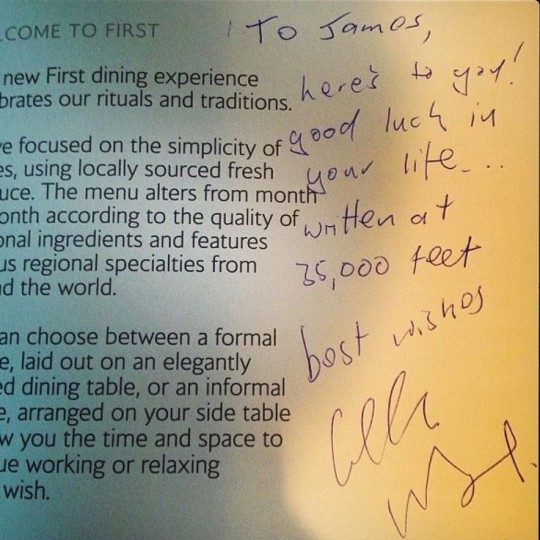 COME TO FIRST
new First dining experience
brates our rituals and traditions.
e focused on the simplicity of
es, using locally sourced fresh
uce. The menu alters from month
onth according to the quality of
onal ingredients and features
us regional specialties from
d the world.
an choose between a formal
e, laid out on an elegantly
ed dining table, or an informal
e, arranged on your side table
w you the time and space to
ue working or relaxing
wish.
To James,
here's to you!
good luck in
your life...
written at
35,000 feet
best wishes